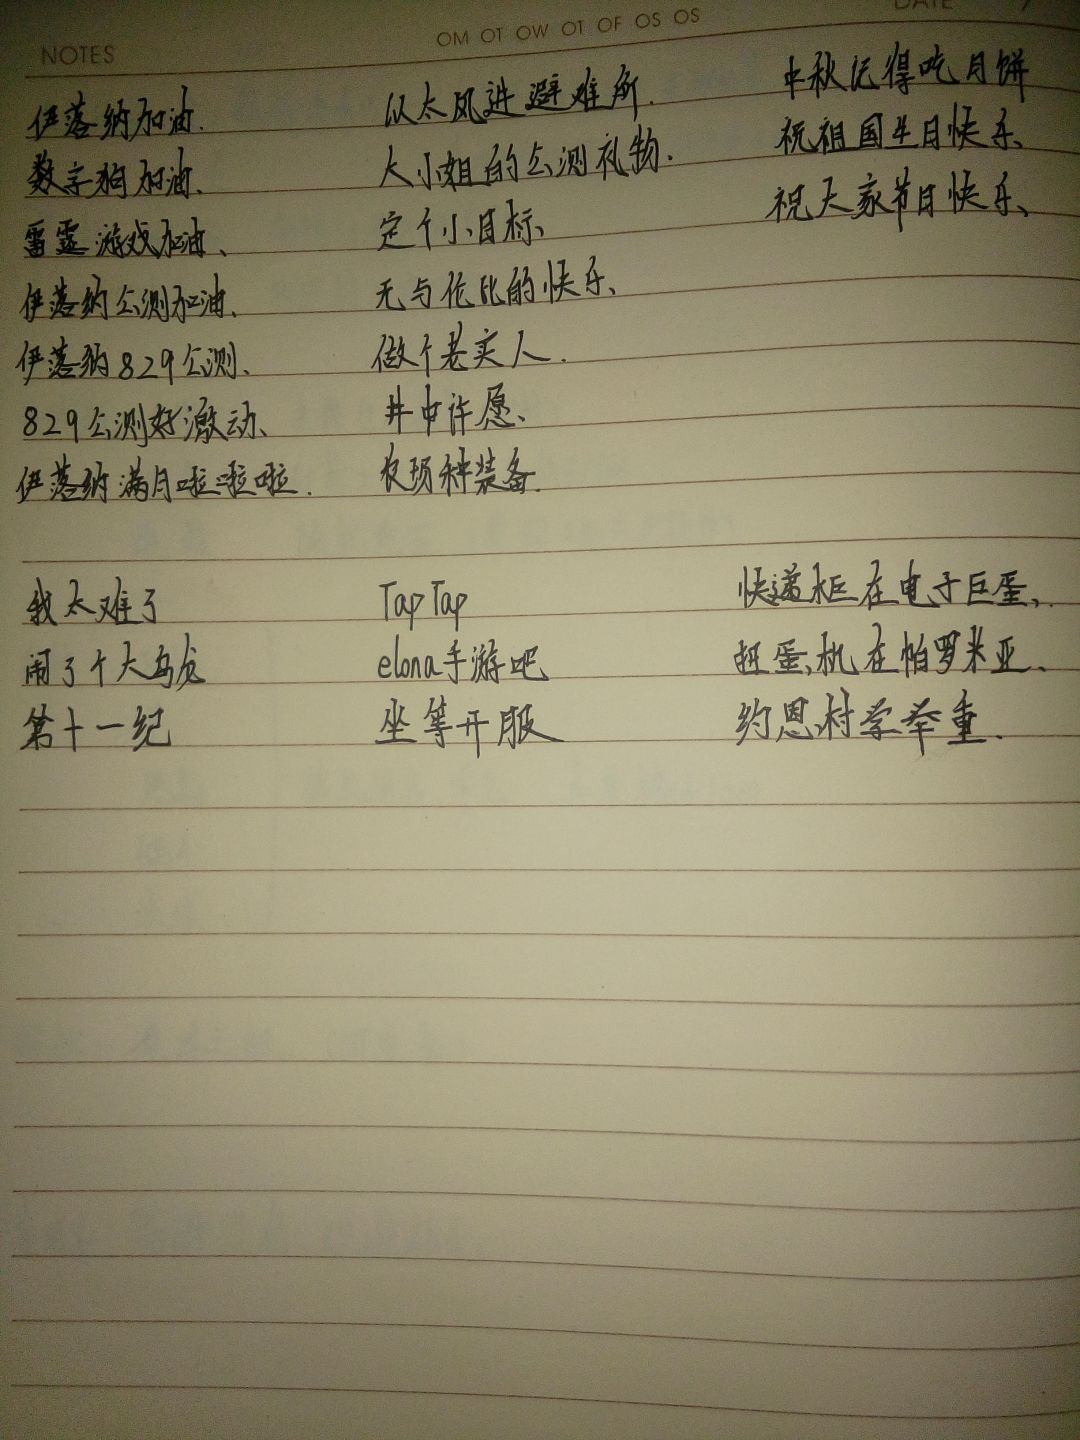 NOTES
OM OT OW OT OF OS OS
DATE
伊落纳加油.
数字狗加油.
雷霆游戏加油、
伊落纳公测加油.
伊落纳829公测.
829公测好激动、
伊落纳满月啦啦啦.
以太风进避难所.
大小姐的公测礼物.
定个小目标、
无与伦比的快乐、
做个老实人.
井中许愿、
衣项种装备.
中秋记得吃月饼
祝祖国生日快乐、
祝大家节日快乐、
我太难了
闹了个大乌龙
第十一纪
TapTap
elona手游吧
坐等开服
快递柜在电子巨蛋、
扭蛋机在帕罗米亚、
约恩村学举重.